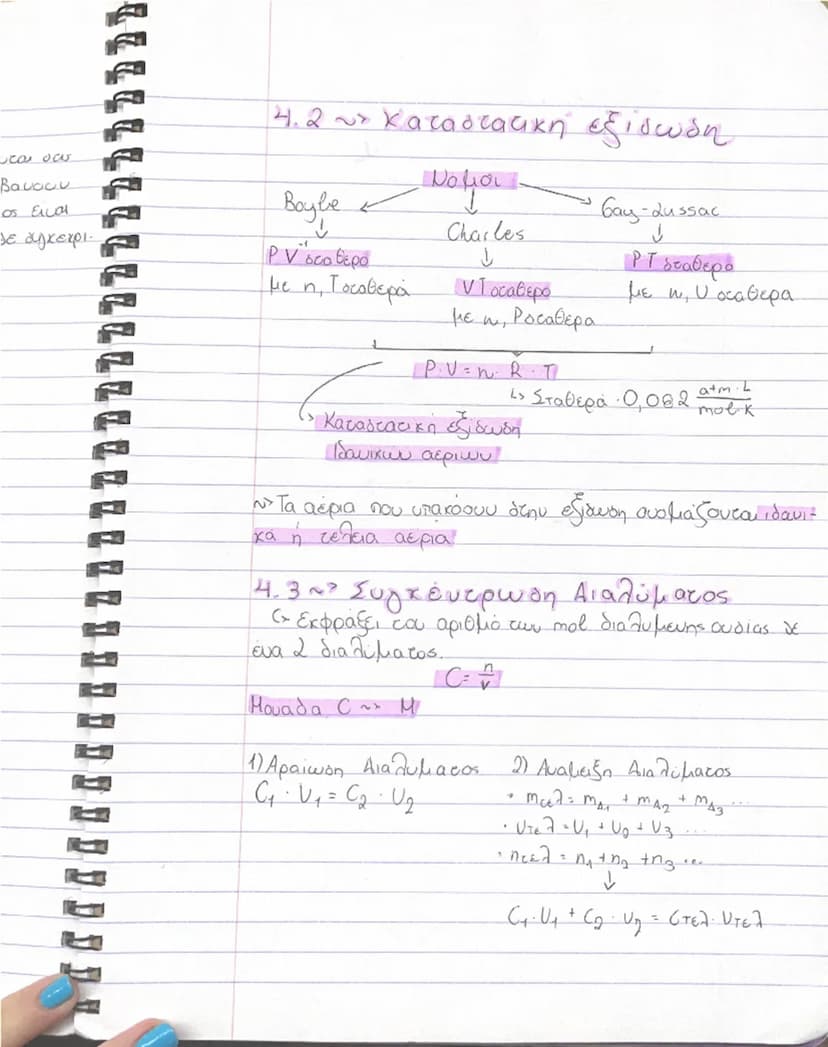 4.2 ~> Καταστατική εξίσωση
νται σαν
βάνουν
ος είναι
σε συγκεκρι-
Νόμοι
Boyle
Charles
Gay-Lussac
P V⁻¹ σταθερό
με n, T σταθερά
V T σταθερό
με n, P σταθερα
P T σταθερό
με n, V σταθερα
P·V = n·R·T
↳ Σταθερά · 0,082 atm·L/mol·K
Καταστατική εξίσωση
Ιδανικών αερίων
~> Τα αέρια που υπακούουν στην εξίσωση ονομάζονται ιδανι-
κά ή τέλεια αέρια
4.3 ~> Συγκέντρωση Διαλύματος
↳ Εκφράζει τον αριθμό των mol διαλυμένης ουσίας σε
ένα L διαλύματος.
C = n/V
Μονάδα C ~> M
1) Αραίωση Διαλύματος
C₁ · V₁ = C₂ · V₂
2) Αναμειξη Διαλύματος
· mτελ = mΔ₁ + mΔ₂ + mΔ₃ ...
· Vτελ = V₁ + V₂ + V₃ ...
· nτελ = n₁ + n₂ + n₃ ...
C₁·V₁ + C₂·V₂ = Cτελ·Vτελ